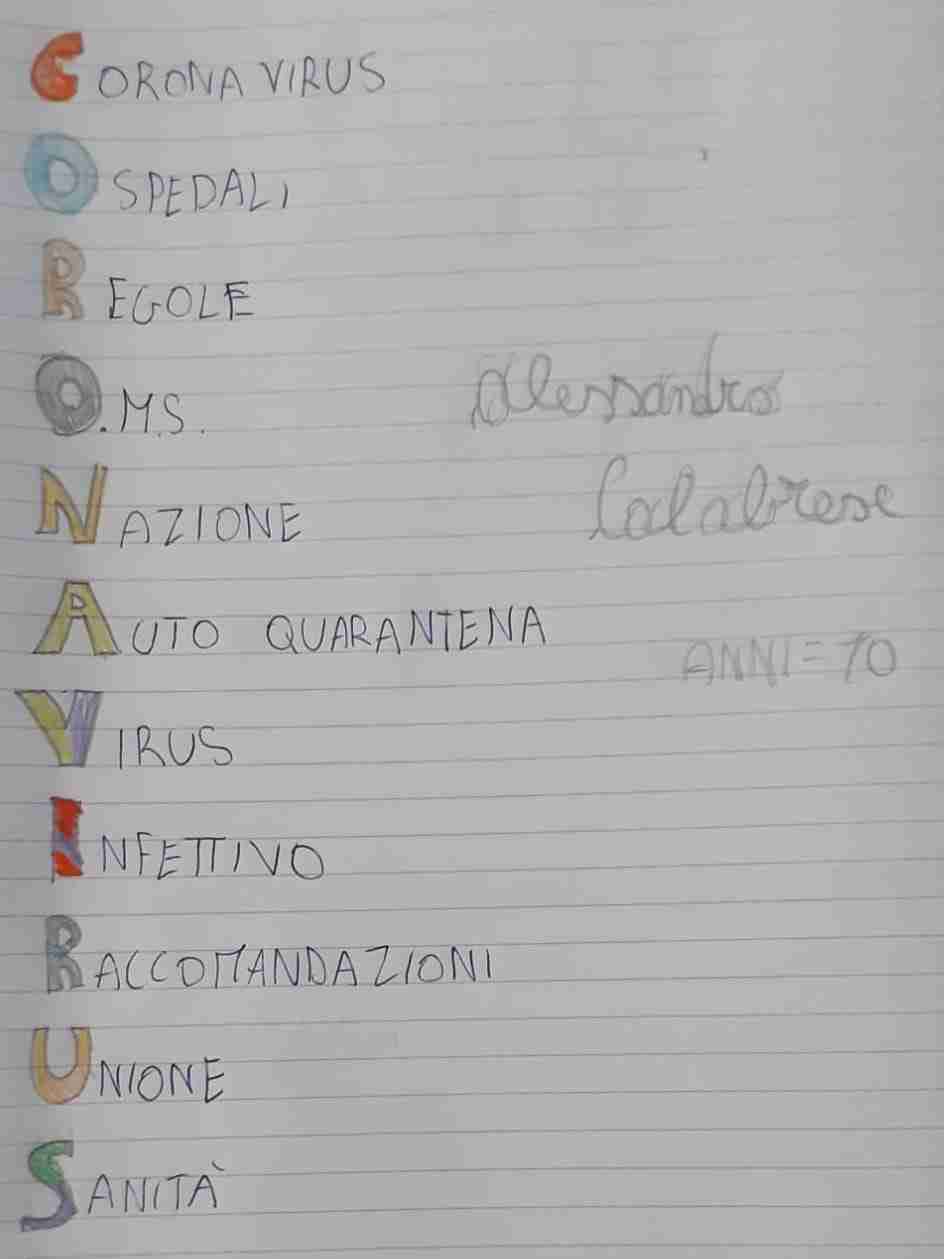 CORONA VIRUS
OSPEDALI
REGOLE
O.M.S.
Alessandro
NAZIONE
Calabrese
AUTO QUARANTENA
ANNI=10
VIRUS
INFETTIVO
RACCOMANDAZIONI
UNIONE
SANITÀ